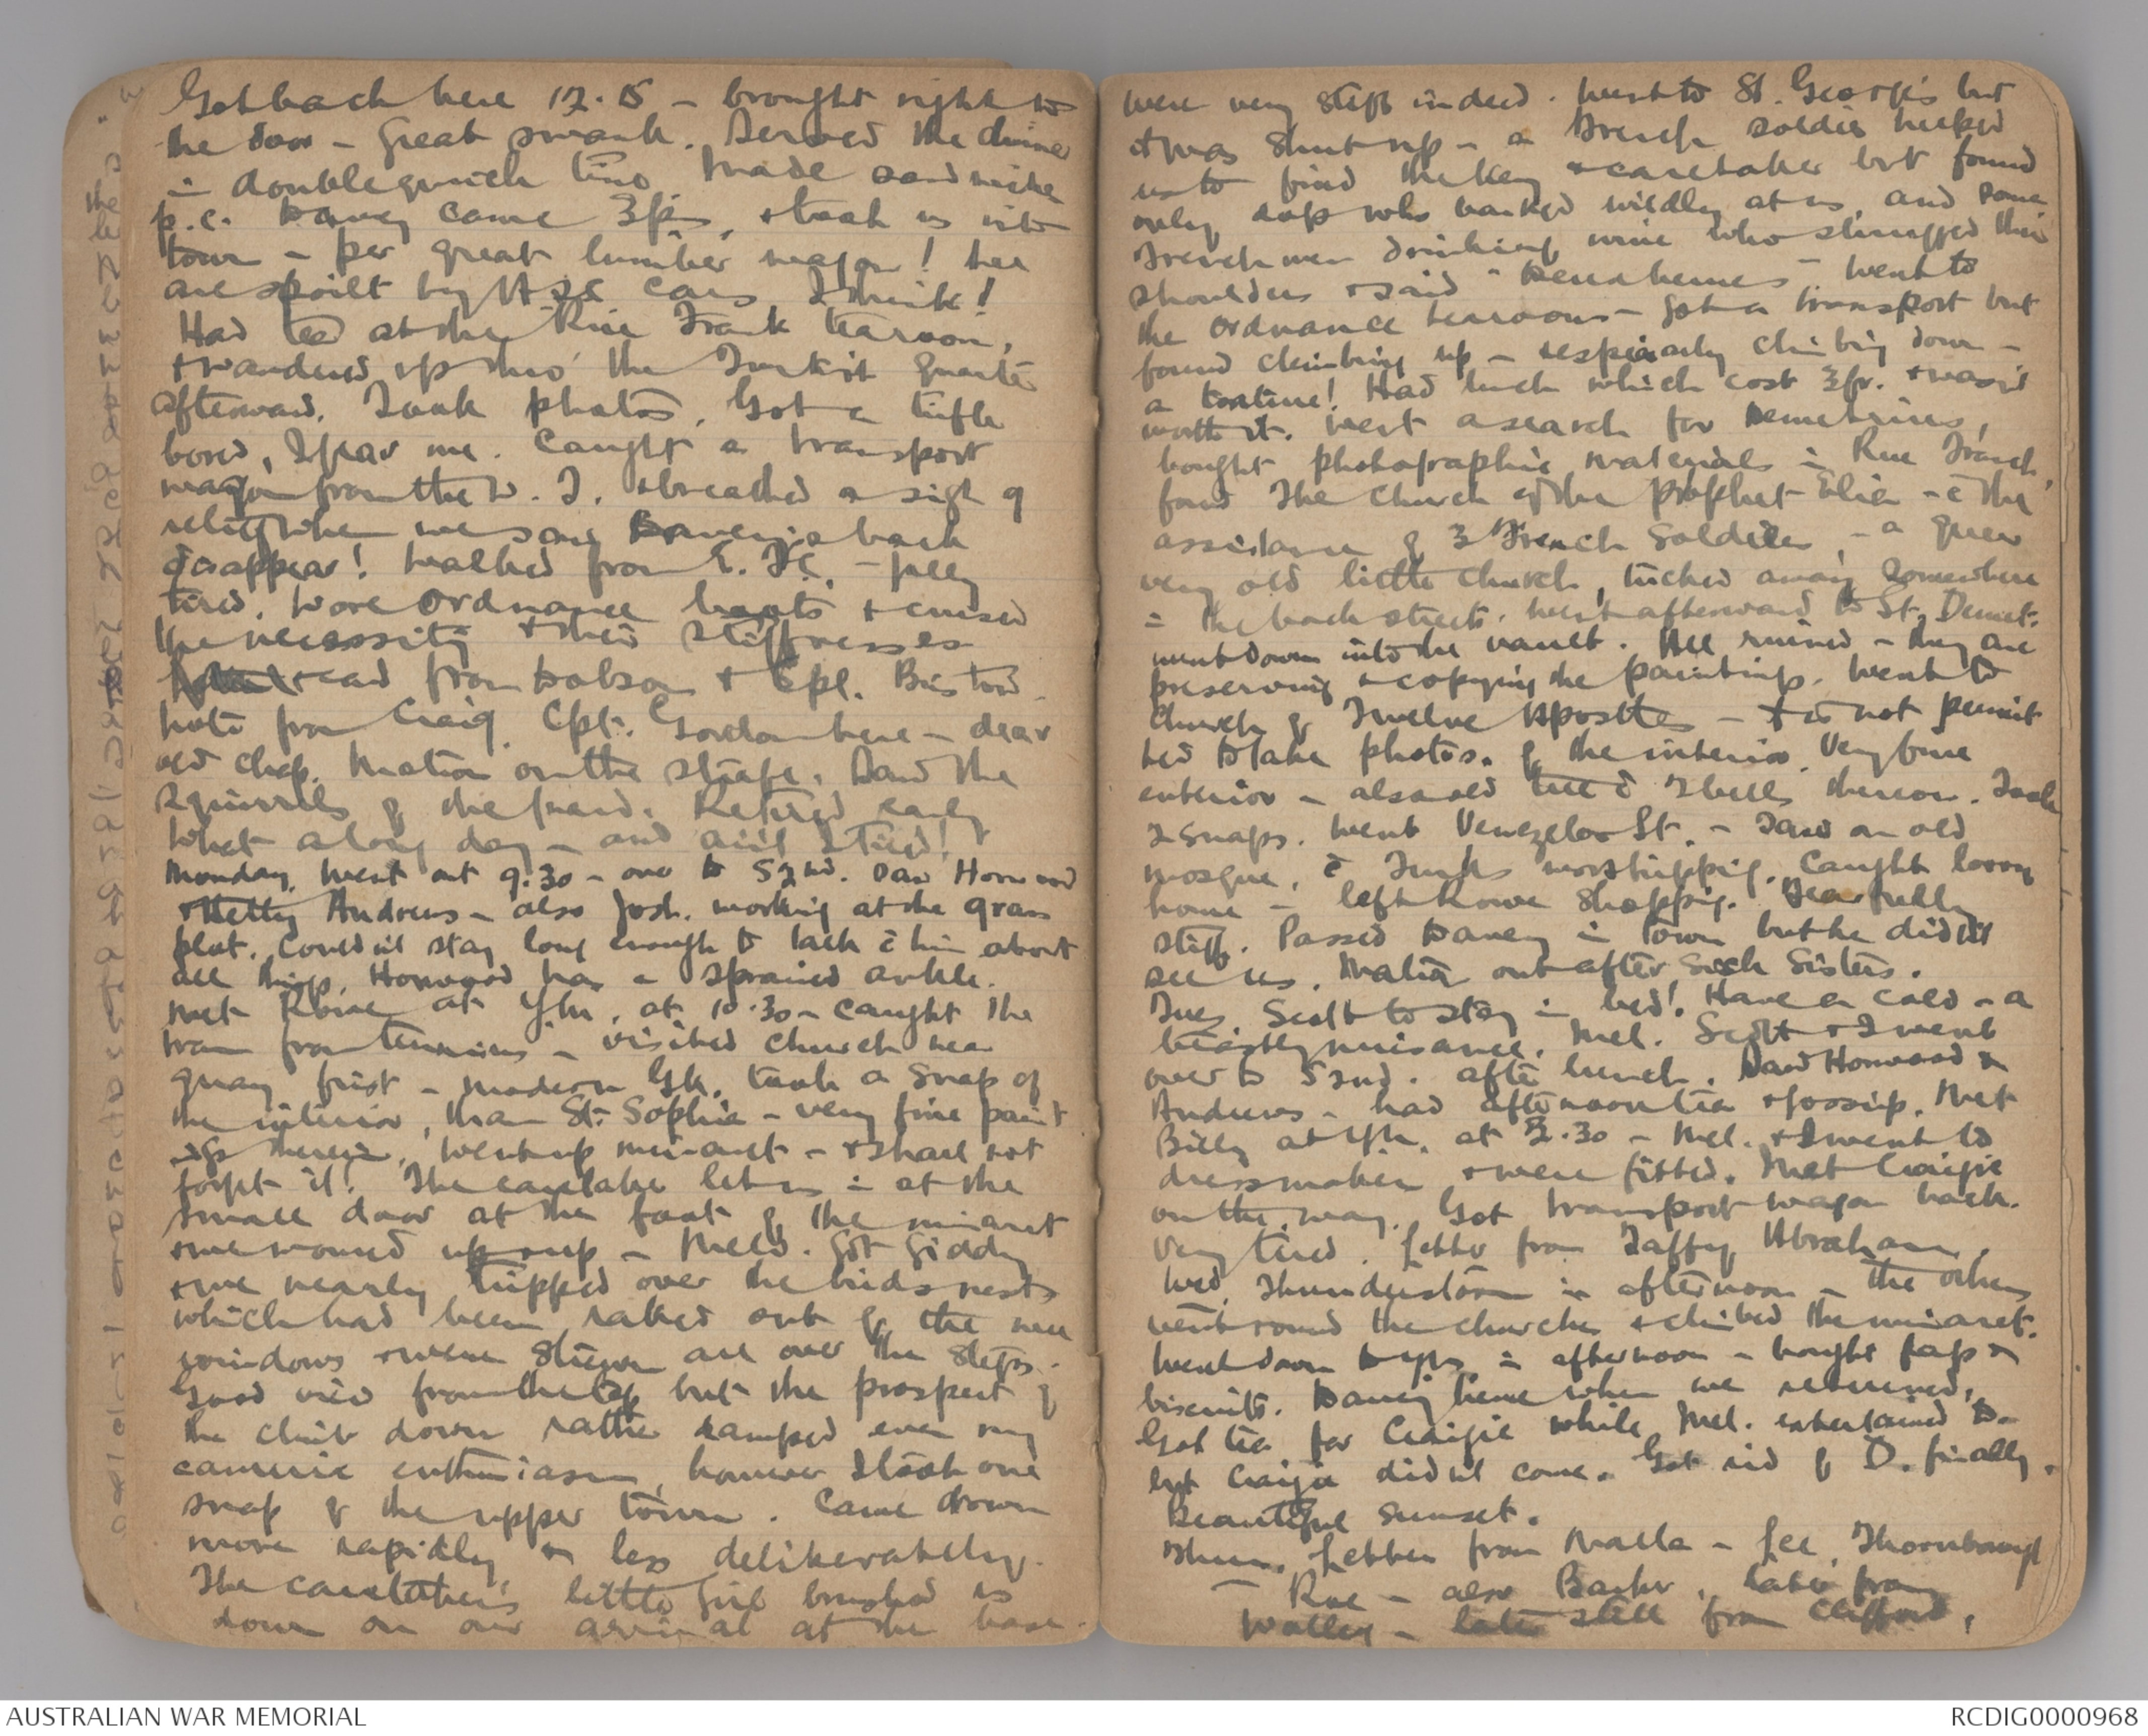 Got back here 12.15 – brought right to
the door – great swank. Served the dinner
in doublequick time. Made sandwiches
p.c. Davey came 3pm, & took us into
town – per great lumber wagon! We
are spoilt by ASC cars I think!
Had tea at the Rue Frank tearoom,
& wandered up thro' the Turkish Quarter
afterward. Took photos. Got a trifle
bored, I fear me. Caught a transport
wagon from the W. T. & breathed a sigh of
relief when we saw Davey's back
disappear! Walked from E. F.C. – jolly
tired. Wore Ordnance boots & cursed
the necessity & their stiffnesses
card from Dobson & Cpl. Bristow.
Note from Craig. Cpt. Gordon here – dear
old chap. Matron on the strafe. Saw the
squirrels of the
Retired early
What a long day – and ain't I tired!
Monday. Went out 9.30 – over to 52nd. Saw Horwood
& Hetty Andrews – also Josh. working at the grass
plot. Couldn't stay long enough to talk c̄ him about
all things. Horwood has a sprained ankle.
Met Rowe at at 10.30 – caught the
tram from terminus – visited church near
quay first – modern Gk. took a snap of
the interior, then St. Sophia – very fine paint
ings therein. Went up minaret – & shall not
forget it! The caretaker let us in at the
small door at the foot of the minaret
& we wound up & up – Mel. got giddy
& we nearly tripped over the birds nests
which had been raked out of the wee
windows & were strewn all over the steps.
Good view from the top but the prospect of
the climb down rather damped even my
camera enthusiasm, however I took one
snap of the upper town. Came down
more rapidly & less deliberately.
The caretaker's little girl brushed us
down on our arrival at the base.
were very stiff indeed. Went to St. George's but
it was shut up – a French soldier helped
us to find the key & caretaker but found
only dogs who barked wildly at us, and some
Frenchmen drinking wine who shrugged their
shoulders & said Went to
the Ordnance tearooms – got a transport but
found climbing up – especially climbing down –
a torture! Had lunch which cost 3fr. & wasn't
worth it. Went a search for Demetrius,
bought photographic materials in Rue Franck,
found the Church of the Prophet Elie – c̄ the
assistance of 3 French soldiers – a queer
very old little church, tucked away somewhere
in the back streets. Went afterward to St. Demet.
went down into the vault. All ruined – they are
preserving & copying the paintings. Went to
Church of Twelve Apostles – & is not permit
ted to take photos. of the interior. Very fine
exterior – also old tree c̄ 3 bells thereon. Took
2 snaps. Went Venezelos St. – saw an old
mosque, c̄ Turks worshipping. Caught lorry
home – left Rowe shopping. Fearfully
stiff. Passed Davey in town but he didn't
see us. Matron out after Sick Sisters.
Tues. Scott to stay in bed! Have a cold – a
beastly nuisance. Mel. Scott & I went
over to 52nd. after lunch. Saw Horwood &
Andrews – had afternoon tea & gossip. Met
Billy at at 3.30 – Mel. & I went to
dressmaker & were fitted. Met Craigie
on the way. Got transport wagon back.
Very tired. Letter from Taffy Abraham.
Wed. Thunderstorm in afternoon – the others
went round the churches & climbed the minaret.
Went down to in afternoon – bought fags &
biscuits. Davey here when we returned.
Got tea for Craigie while Mel. entertained D.
but Craigie didn't come. Got rid of D. finally.
Beautiful sunset.
Thurs. Letters from Malta – Lee, Thornbough
– Rae – also Barker, later from
Walley – later still from Clifford,
AUSTRALIAN WAR MEMORIAL
RCDIG0000968